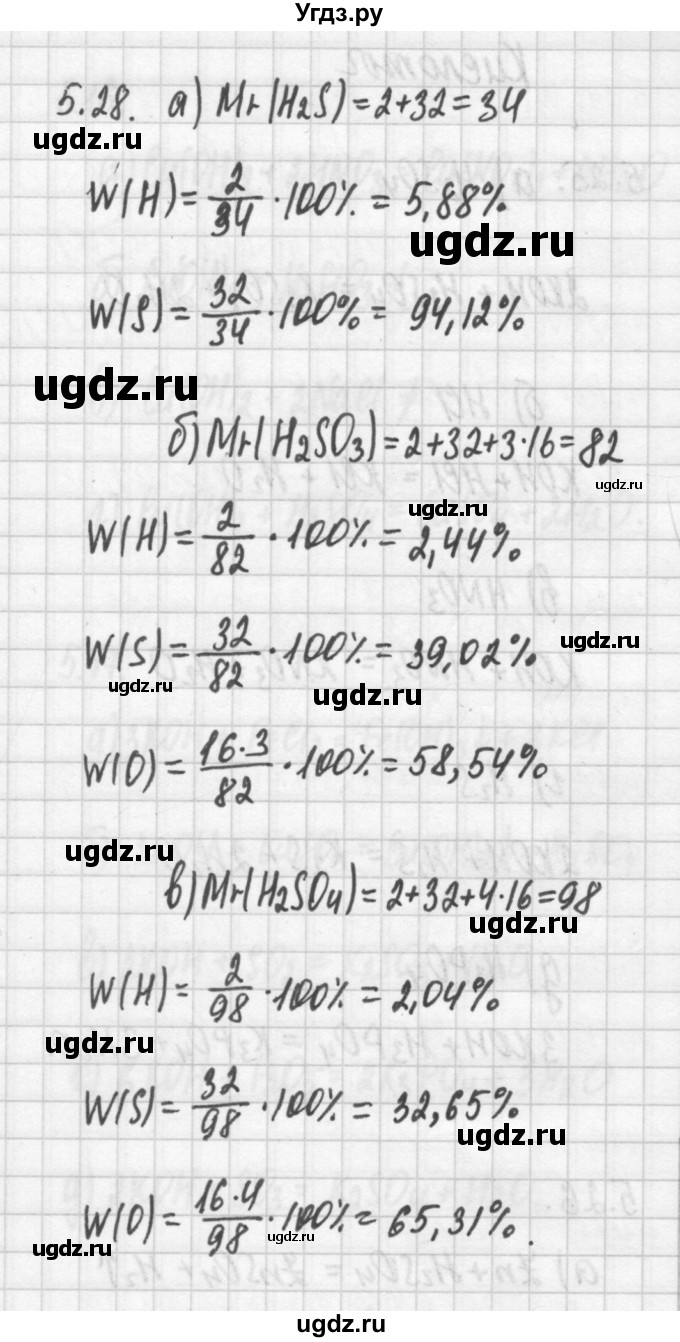 Угдз.ру
5.28. а) Mr(H₂S)=2+32=34
ugdz.ru
W(H)=2/34·100%=5,88%
ugdz.ru
W(S)=32/34·100%=94,12%
ugdz.ru
б) Mr(H₂SO₃)=2+32+3·16=82
ugdz.ru
ugdz.ru
W(H)=2/82·100%=2,44%
W(S)=32/82·100%=39,02%
ugdz.ru
ugdz.ru
ugdz.ru
W(O)=16·3/82·100%=58,54%
ugdz.ru
в) Mr(H₂SO₄)=2+32+4·16=98
ugdz.ru
W(H)=2/98·100%=2,04%
ugdz.ru
W(S)=32/98·100%=32,65%
ugdz.ru
W(O)=16·4/98·100%=65,31%.
ugdz.ru
ugdz.ru
Угдз.ру